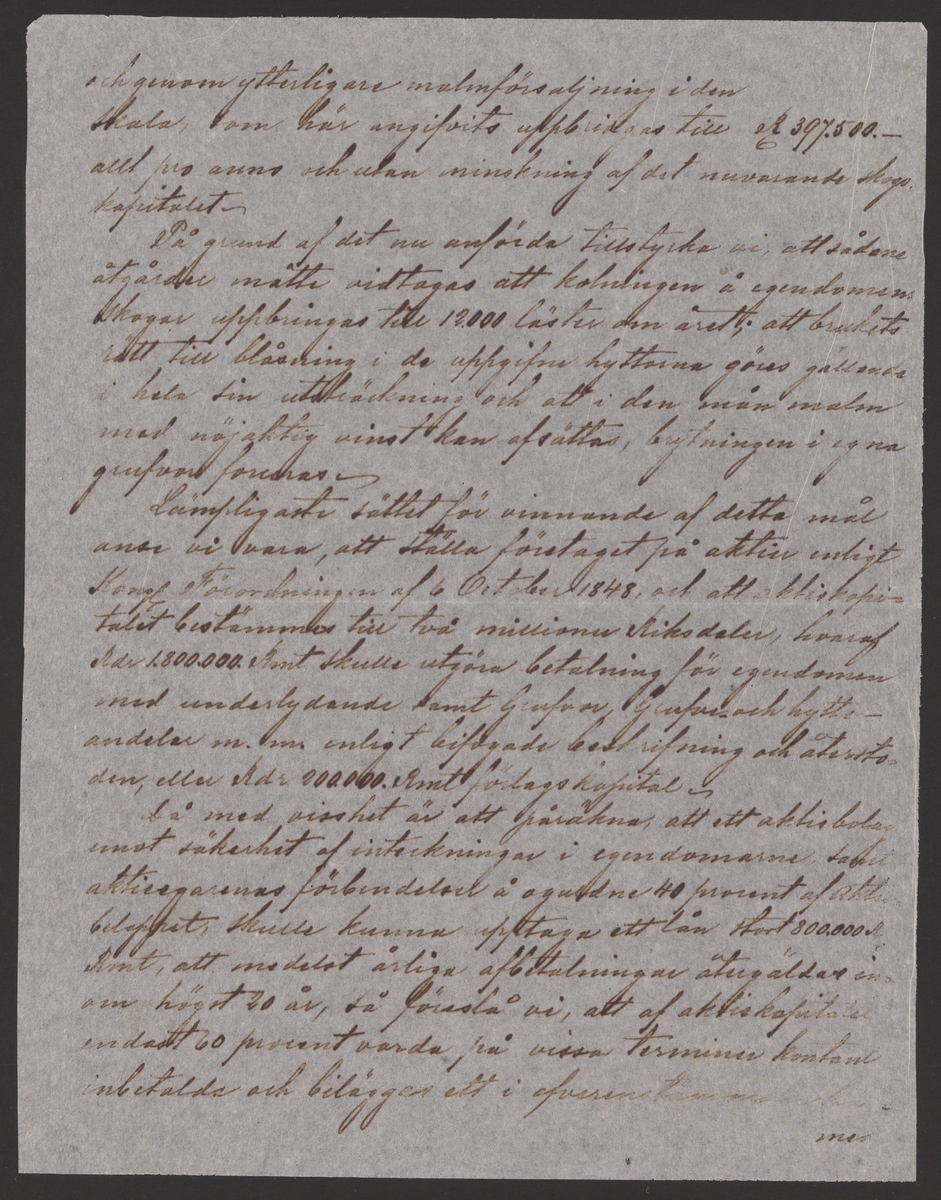 och genom ytterligare malmförsäljning i den
skala, som här angifvits uppbringas till R 397.500.—
allt pro anno och utan minskning af det nuvarande skogs-
kapitalet.
På grund af det nu anförda tillstyrka vi, att sådane
åtgärder måtte vidtagas att kolningen å egendomens
skogar uppbringas till 12.000 läster om året; att brukets
rätt till blåsning i de uppgifne hyttorna göres gällande
i hela sin utsträckning och att i den mån malm
med nöjaktig vinst kan afsättas, brytningen i egna
grufvor forceras.
Lämpligaste sättet för vinnande af detta mål
anse vi vara, att ställa företaget på aktier enligt
Kongl Förordningen af 6 October 1848, och att aktiekapi-
talet bestämmes till två millioner Riksdaler, hvaraf
Rdr 1.800.000. Rmt skulle utgöra betalning för egendomen
med underlydande samt Grufvor, Grufve- och hytte-
andelar m. m. enligt bifogade beskrifning och återsto-
den, eller Rdr 200.000. Rmt förlagskapital.
Då med visshet är att påräkna, att ett aktiebolag
emot säkerhet af inteckningar i egendomarne, samt
aktieegarenas förbindelser å oguldne 40 procent af aktie-
beloppet, skulle kunna upptaga ett lån stort 800.000 R
Rmt, att medelst årliga afbetalningar återgäldas in-
om högst 20 år, så föreslå vi, att af aktiekapitalet
endast 60 procent varda på vissa terminer kontant
inbetalda och bilägges ett i öfverensstämmelse här-
med